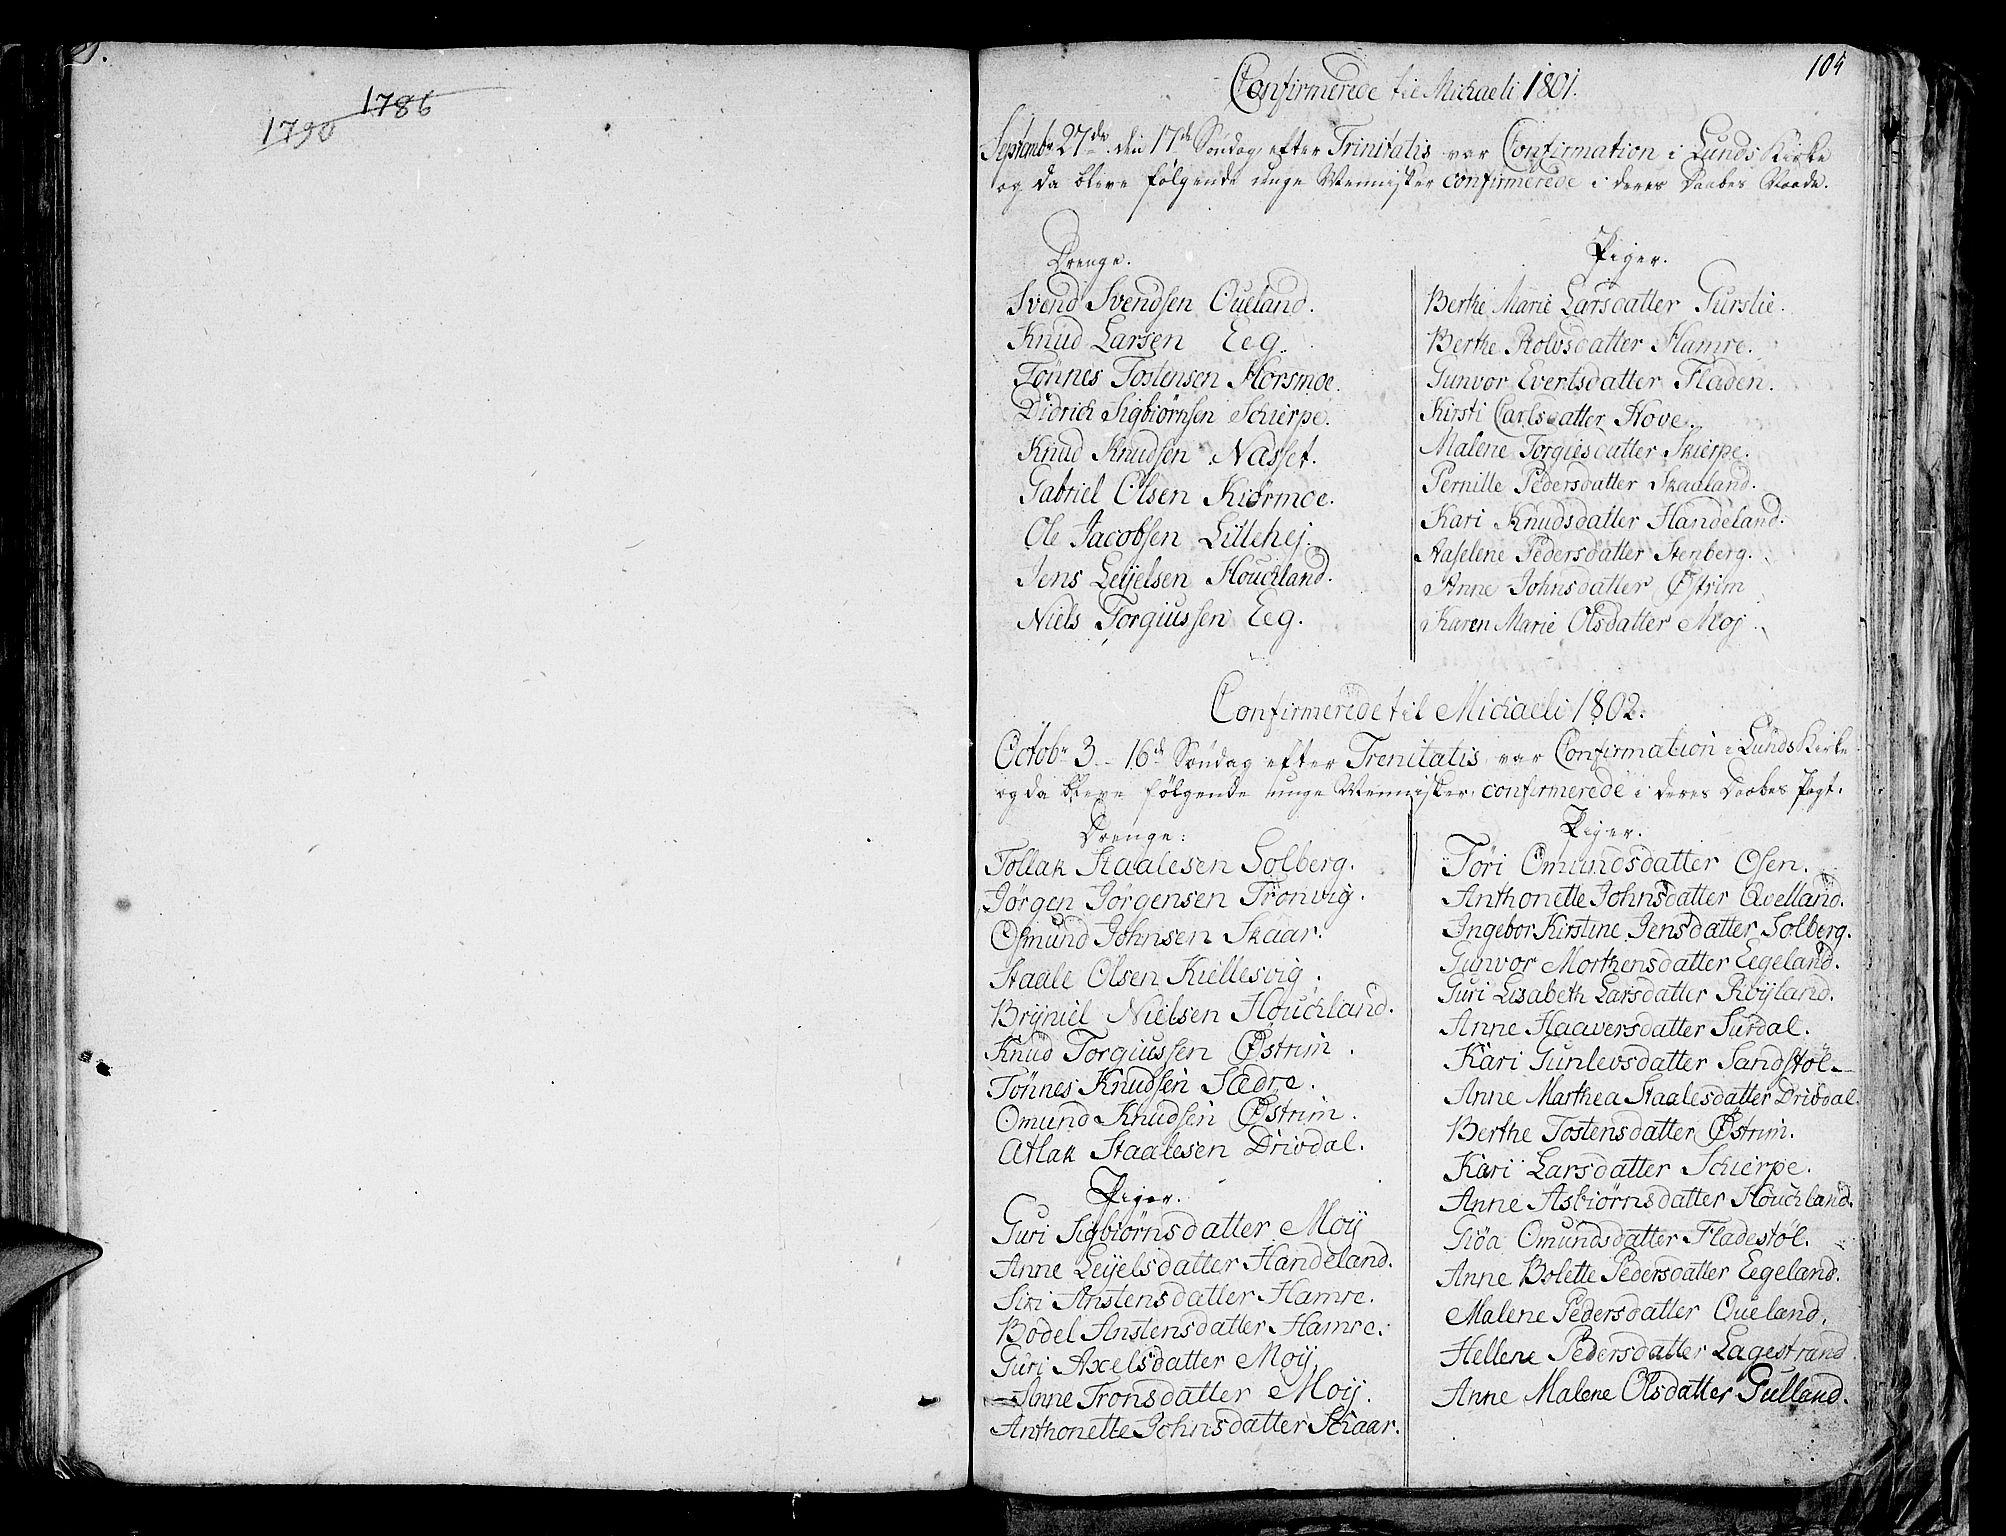 1786
1790
104
Confirmerede til Michaeli 1801.
Septembr 27de den 17de Søndag efter Trinitatis var Confirmation i Lunds Kirke
og da bleve følgende unge Mennisker confirmerede i deres Daabes Naade.
Drenge.
Svend Svendsen Qveland.
Knud Larsen Eeg.
Tönnes Tostensen Horsmoe.
Didrich Sigbiörnsen Schierpe.
Knud Knudsen Nasset.
Gabriel Olsen Kiörmoe.
Ole Jacobsen Lillehej.
Jens Leijelsen Houchland.
Niels Torgiussen Eeg.
Piger.
Berthe Marie Larsdatter Gurslie.
Berthe Rolvsdatter Hamre.
Gunvor Evertsdatter Fladen.
Kirsti Carlsdatter Hove.
Malene Torgiesdatter Skierpe.
Pernille Pedersdatter Skaaland.
Kari Knudsdatter Handeland.
Aaselene Pedersdatter Stenberg.
Anne Johnsdatter Østrim
Karen Marie Olsdatter Moj.
Confirmerede til Michaeli 1802.
Octobr 3. - 16de Søndag efter Trenitatis var Confirmation i Lunds Kirke
og da bleve følgende unge Mennisker confirmerede i deres Daabes Pagt.
Drenge:
Tollak Staalesen Solberg.
Jörgen Jörgensen Tronvig.
Osmund Johnsen Skaar.
Staale Olsen Kiellesvig.
Bryniel Nielsen Houchland.
Knud Torgiussen Østrim.
Tönnes Knudsen Sædre.
Omund Knudsen Østrim.
Atlak Staalesen Drivdal.
Piger.
Guri Sigbiörnsdatter Moij
Anne Leijelsdatter Handeland.
Siri Anstensdatter Hamre.
Bodel Anstensdatter Hamre.
Guri Axelsdatter Moij.
Anne Tronsdatter Moij.
Anthonette Johnsdatter Schaar.
Piger.
Töri Omundsdatter Osen.
Anthonette Johnsdatter Qvelland.
Ingebor Kirstine Jensdatter Solberg.
Gunvor Morthensdatter Eegeland.
Guri Lisabeth Larsdatter Röijland.
Anne Haaversdatter Surdal.
Kari Gunlevsdatter Sandstöl
Anne Marthea Staalesdatter Drivdal.
Berthe Tostensdatter Østrim.
Kari Larsdatter Schierpe.
Anne Asbiörnsdatter Houchland.
Giöa Omundsdatter Fladestöl.
Anne Bolette Pedersdatter Eegeland.
Malene Pedersdatter Qveland.
Hellene Pedersdatter Lagestrand.
Anne Malene Olsdatter Gulland.